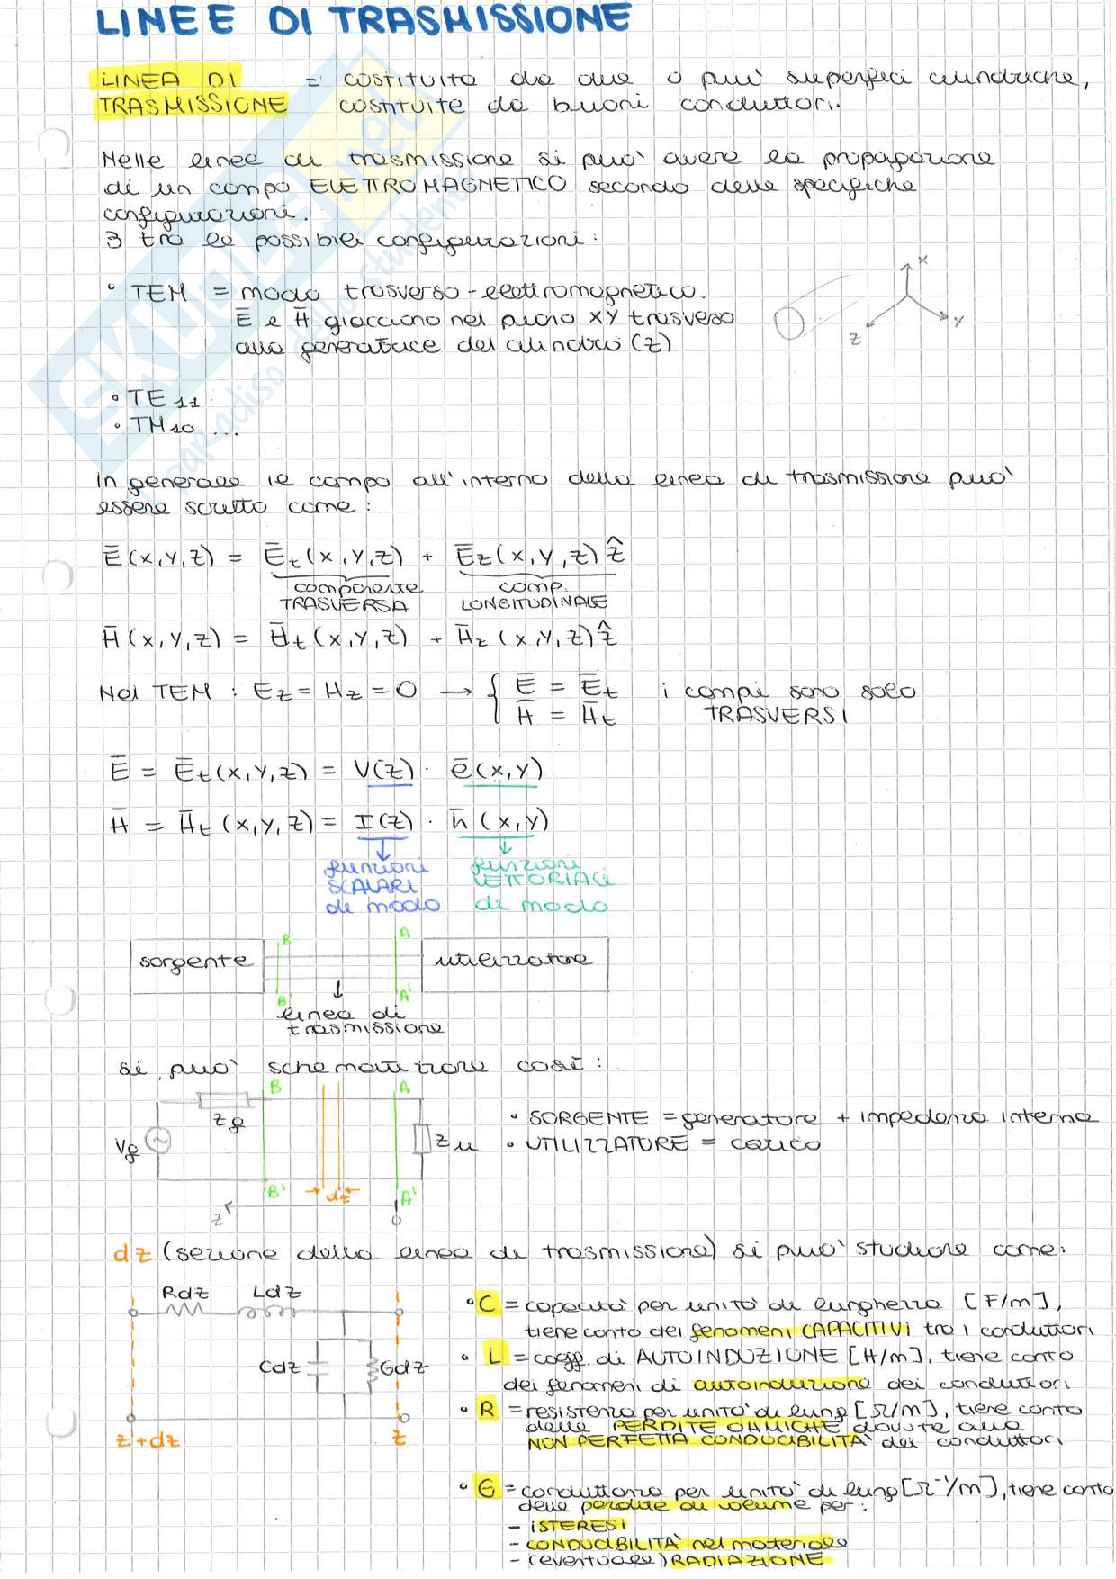 LINEE DI TRASMISSIONE
LINEA DI TRASMISSIONE = costituita da due o più superfici cilindriche,
costituite da buoni conduttori.
Nelle linee di trasmissione si può avere la propagazione
di un campo ELETTROMAGNETICO secondo delle specifiche
configurazioni.
3 tra le possibili configurazioni:
• TEM = modo trasverso-elettromagnetico.
E̅ e H̅ giacciono nel piano XY trasverso
alla generatrice dei cilindri (z)
x
y
z
• TE11
• TM10 ...
In generale il campo all'interno della linea di trasmissione può
essere scritto come:
E̅(x,y,z) = E̅t(x,y,z) + E̅z(x,y,z)ẑ
componente TRASVERSA
comp. LONGITUDINALE
H̅(x,y,z) = H̅t(x,y,z) + H̅z(x,y,z)ẑ
Nel TEM: Ez = Hz = 0 → { E̅ = E̅t i campi sono solo
H̅ = H̅t TRASVERSI
E̅ = E̅t(x,y,z) = V(z) · e̅(x,y)
H̅ = H̅t(x,y,z) = I(z) · h̅(x,y)
funzioni SCALARI di modo
funzioni VETTORIALI di modo
sorgente B B' A A' utilizzatore
linea di
trasmissione
si può schematizzare così:
B A
zg
Vg
zu
B' dz A'
z 0
• SORGENTE = generatore + impedenza interna
• UTILIZZATORE = carico
dz (sezione della linea di trasmissione) si può studiare come:
Rdz Ldz
Cdz Gdz
z+dz z
• C = capacità per unità di lunghezza [F/m],
tiene conto dei fenomeni CAPACITIVI tra i conduttori
• L = coeff. di AUTOINDUZIONE [H/m], tiene conto
dei fenomeni di autoinduzione dei conduttori
• R = resistenza per unità di lung [Ω/m], tiene conto
delle PERDITE OHMICHE dovute alla
NON PERFETTA CONDUCIBILITÀ dei conduttori
• G = conduttanza per unità di lung [Ω⁻¹/m], tiene conto
delle perdite di volume per:
- ISTERESI
- CONDUCIBILITÀ nel materiale
- (eventuale) RADIAZIONE